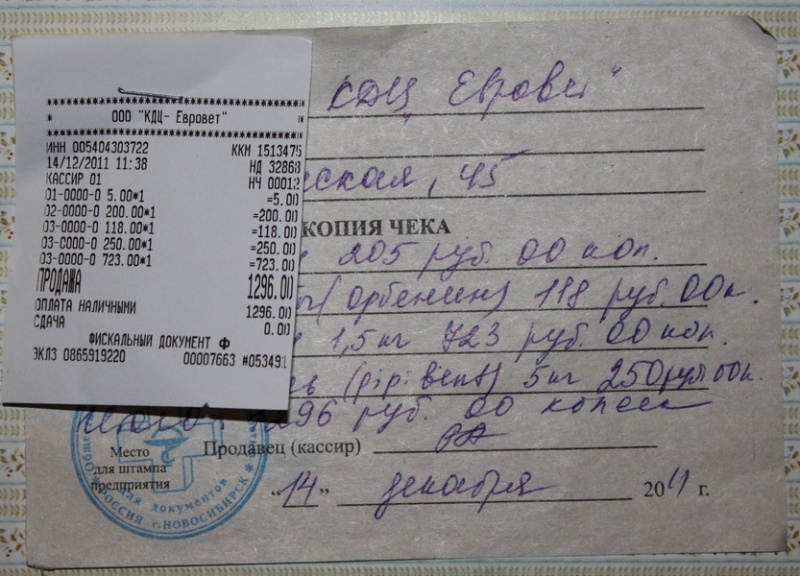 КДЦ "Евровет"
ская, 45
КОПИЯ ЧЕКА
205 руб. 00 коп.
(Орбенин) 118 руб. 00к.
1,5 кг 723 руб. 00 коп.
(pipi bent) 5 кг 250 руб 00к.
96 руб. 00 копеек
Продавец (кассир)
Место
для штампа
предприятия
"14" декабря 2011 г.
для документов
РОССИЯ г.НОВОСИБИРСК
****************************
* ООО "КДЦ- Евровет" *
****************************
ИНН 005404303722 ККМ 1513475
14/12/2011 11:38 НД 32868
КАССИР 01 НЧ 00012
01-0000-0 5.00*1 =5.00
02-0000-0 200.00*1 =200.00
03-0000-0 118.00*1 =118.00
03-0000-0 250.00*1 =250.00
03-0000-0 723.00*1 =723.00
ПРОДАЖА 1296.00
ОПЛАТА НАЛИЧНЫМИ 1296.00
СДАЧА 0.00
ФИСКАЛЬНЫЙ ДОКУМЕНТ Ф
ЭКЛЗ 0865919220 00007663 #053491